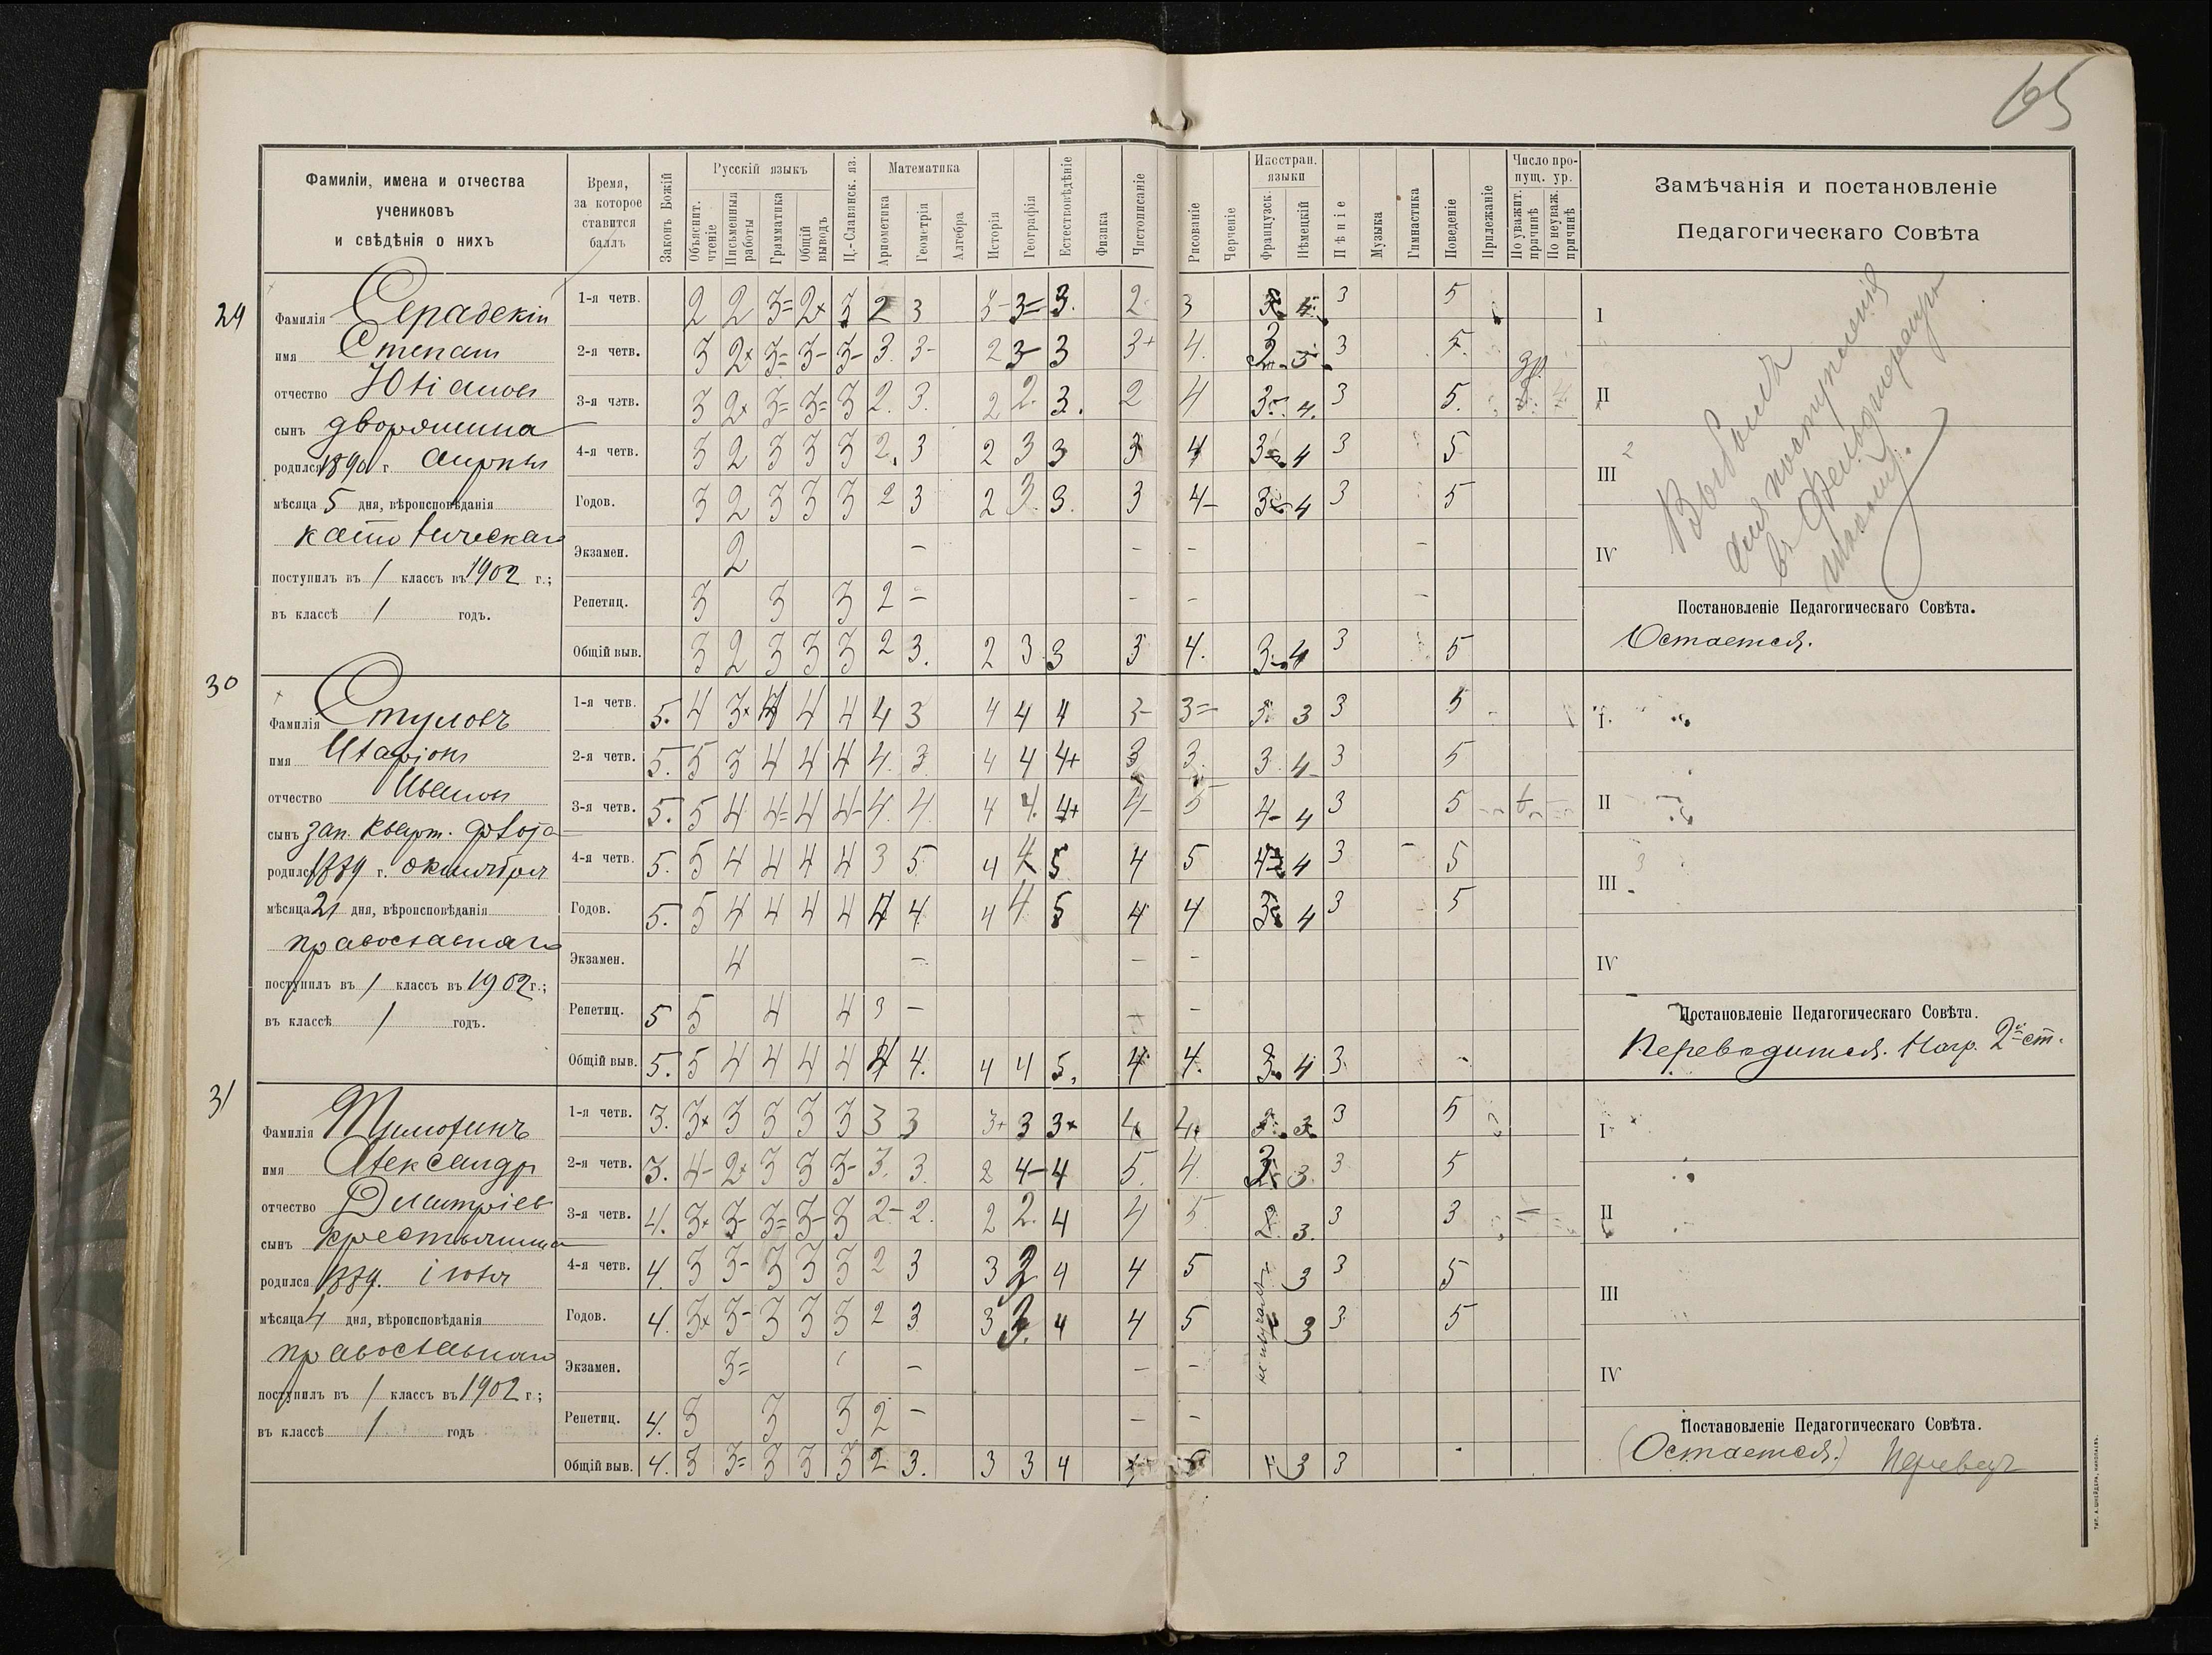 65
Фамиліи, имена и отчества
учениковъ
и свѣдѣнія о нихъ
Время,
за которое
ставится
баллъ
Законъ Божій
Русскій языкъ
Объяснит. чтеніе
Письменныя работы
Грамматика
Общій выводъ
Ц.-Славянск. яз.
Математика
Ариѳметика
Геометрія
Алгебра
Исторія
Географія
Естествовѣдѣніе
Физика
Чистописаніе
Рисованіе
Черченіе
Иностран. языки
Французск.
Нѣмецкій
Пѣніе
Музыка
Гимнастика
Поведеніе
Прилежаніе
Число пропущ. ур.
По уважит. причинѣ
По неуваж. причинѣ
Замѣчанія и постановленіе
Педагогическаго Совѣта
29
Фамилія
имя Степанъ
отчество
сынъ дворянина
родился 1890 г.
мѣсяца 5 дня, вѣроисповѣданія
католическаго
поступилъ въ 1 классъ въ 1902 г.;
въ классѣ 1 годъ.
1-я четв. 2 2 3= 2+ 3 2 3 3- 3= 3. 2 3 4 3 5
2-я четв. 3 2+ 3= 3- 3- 3. 3- 2 3- 3 3+ 4. 3 5.
3-я четв. 3 2+ 3= 3= 3 2. 3. 2 2. 3. 2 4 3 4. 3 5.
4-я четв. 3 2 3 3 3 2. 3 2 3 3 3 4 3 4 3 5
Годов. 3 2 3 3 3 2 3 2 3. 3. 3 4- 3 4 3 5
Экзамен. 2 – – – –
Репетиц. 3 3 3 2 – – – –
Общій выв. 3 2 3 3 3 2 3. 2 3 3 3 4. 3 4 3 5
I
II
III
IV
Выбылъ
для поступленія
въ
школу.
Постановленіе Педагогическаго Совѣта.
Остается.
30
Фамилія Стуловъ
имя Иларіонъ
отчество Ивановъ
сынъ зап. кварт.
родился 1889 г. октября
мѣсяца 21 дня, вѣроисповѣданія
православнаго
поступилъ въ 1 классъ въ 1902 г.;
въ классѣ 1 годъ.
1-я четв. 5. 4 3+ 4 4 4 4 3 4 4 4 3- 3= 3. 3 3 5
2-я четв. 5. 5 3 4 4 4 4. 3 4 4 4+ 3 3. 3 4 3 5
3-я четв. 5. 5 4 4= 4 4- 4. 4. 4 4. 4+ 4- 5 4- 4 3 5
4-я четв. 5. 5 4 4 4 4 3 5 4 4 5 4 5 4 4 3 – 5
Годов. 5. 5 4 4 4 4 4 4 4 4 5 4 4 3 4 3 5
Экзамен. 4 – – –
Репетиц. 5 5 4 4 3 – –
Общій выв. 5. 5 4 4 4 4 4 4. 4 4 5. 4 4. 3 4 3
I
II
III
IV
Постановленіе Педагогическаго Совѣта.
Переводится. Нагр. 2й ст.
31
Фамилія
имя Александръ
отчество Дмитріевъ
сынъ крестьянина
родился 1889. іюля
мѣсяца 4 дня, вѣроисповѣданія
православнаго
поступилъ въ 1 классъ въ 1902 г;
въ классѣ 1 годъ
1-я четв. 3. 3+ 3 3 3 3 3 3 3+ 3 3+ 4 4 3 3 5
2-я четв. 3. 4- 2+ 3 3 3- 3. 3. 2 4- 4 5. 4. 3. 3 5
3-я четв. 4. 3+ 3- 3= 3- 3 2- 2. 2 2. 4 4 5 2. 3. 3 3
4-я четв. 4. 3 3- 3 3 3 2 3 3 3 4 4 5 3 3 5
Годов. 4. 3+ 3- 3 3 3 2 3 3 3. 4 4 5 3 3 5
Экзамен. 3= – – –
Репетиц. 4. 3 3 3 2 – – –
Общій выв. 4. 3 3= 3 3 3 2 3. 3 3 4 3 3
I
II
III
IV
Постановленіе Педагогическаго Совѣта.
(Остается.)
ТИП. А. ШНЕЙДЕРА, НИКОЛАЕВЪ.